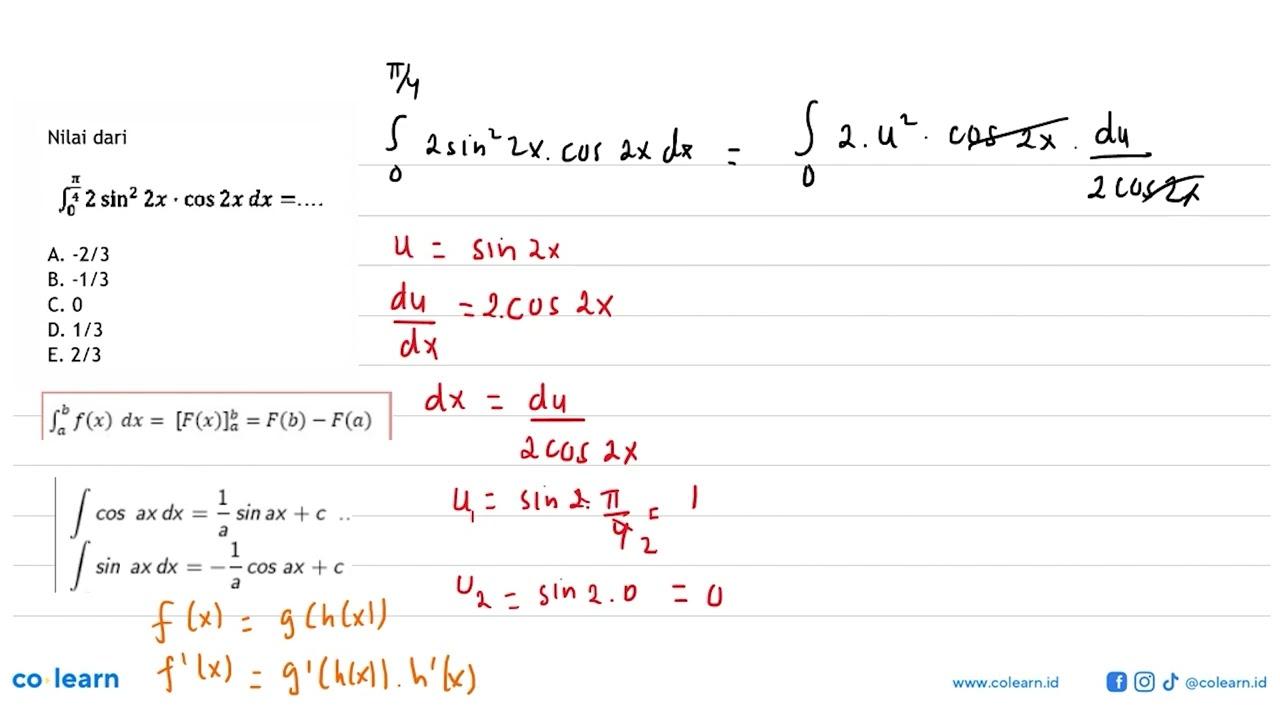 Nilai dari
∫₀^(π/4) 2 sin² 2x · cos 2x dx =....
A. -2/3
B. -1/3
C. 0
D. 1/3
E. 2/3
∫ₐᵇ f(x) dx = [F(x)]ₐᵇ = F(b) − F(a)
∫ cos ax dx = 1/a sin ax + c ..
∫ sin ax dx = −1/a cos ax + c
f(x) = g(h(x))
f'(x) = g'(h(x)). h'(x)
∫₀^(π/4) 2 sin² 2x. cos 2x dx = ∫₀ 2. u². cos 2x . du/2 cos 2x
u = sin 2x
du/dx = 2.cos 2x
dx = du/2 cos 2x
u₁ = sin 2. π/4 2 = 1
u₂ = sin 2.0 = 0
co·learn
www.colearn.id
@colearn.id